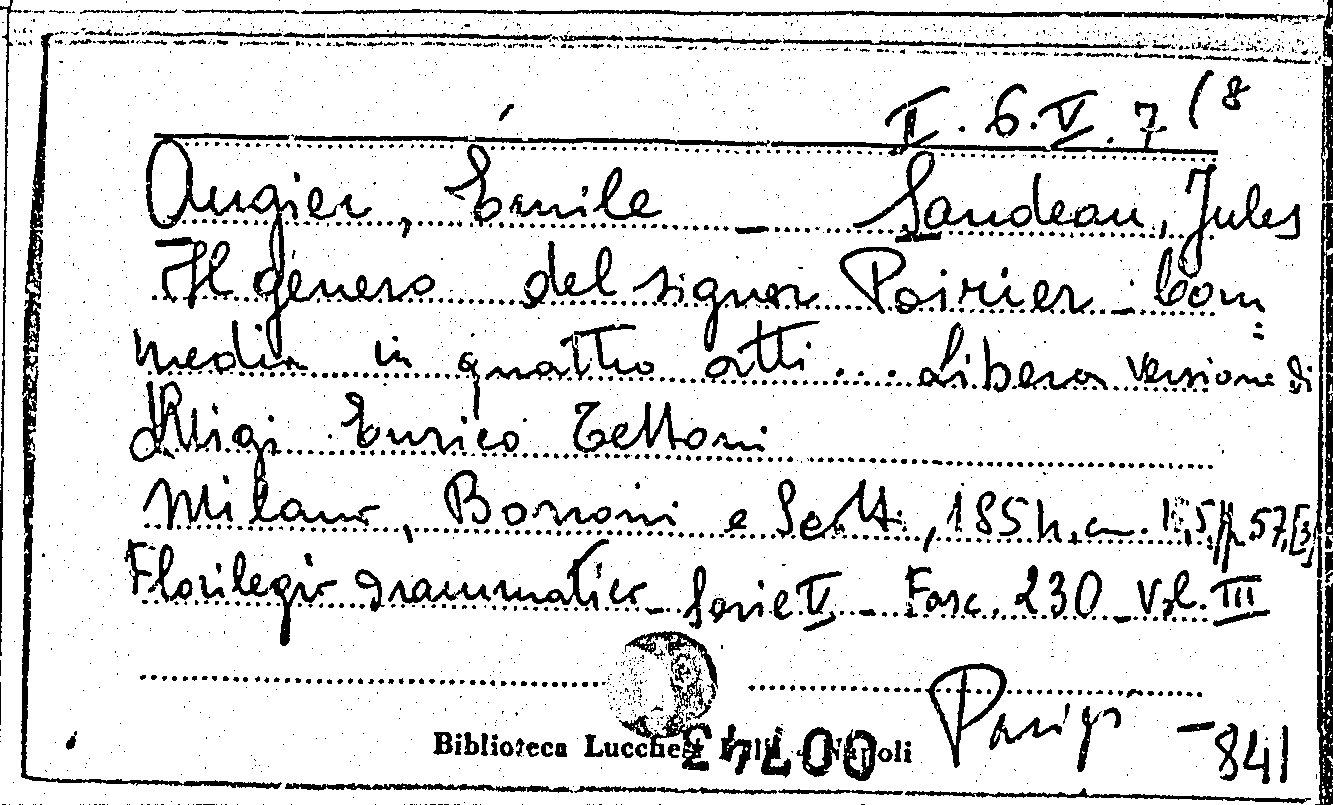 II. 6. V. 7 (8
Augier, Emile - Sandeau, Jules
Il genero del signor Poirier - Com=
media in quattro atti ... Libera versione di
Luigi Enrico Tettoni
Milano, Borroni e Scotti, 1854, cm. 15,5, pp. 57, [3]
Florilegio drammatico - Serie V - Fasc. 230 - Vol. III
Parigi - 841
Biblioteca Lucchesi Palli - Napoli